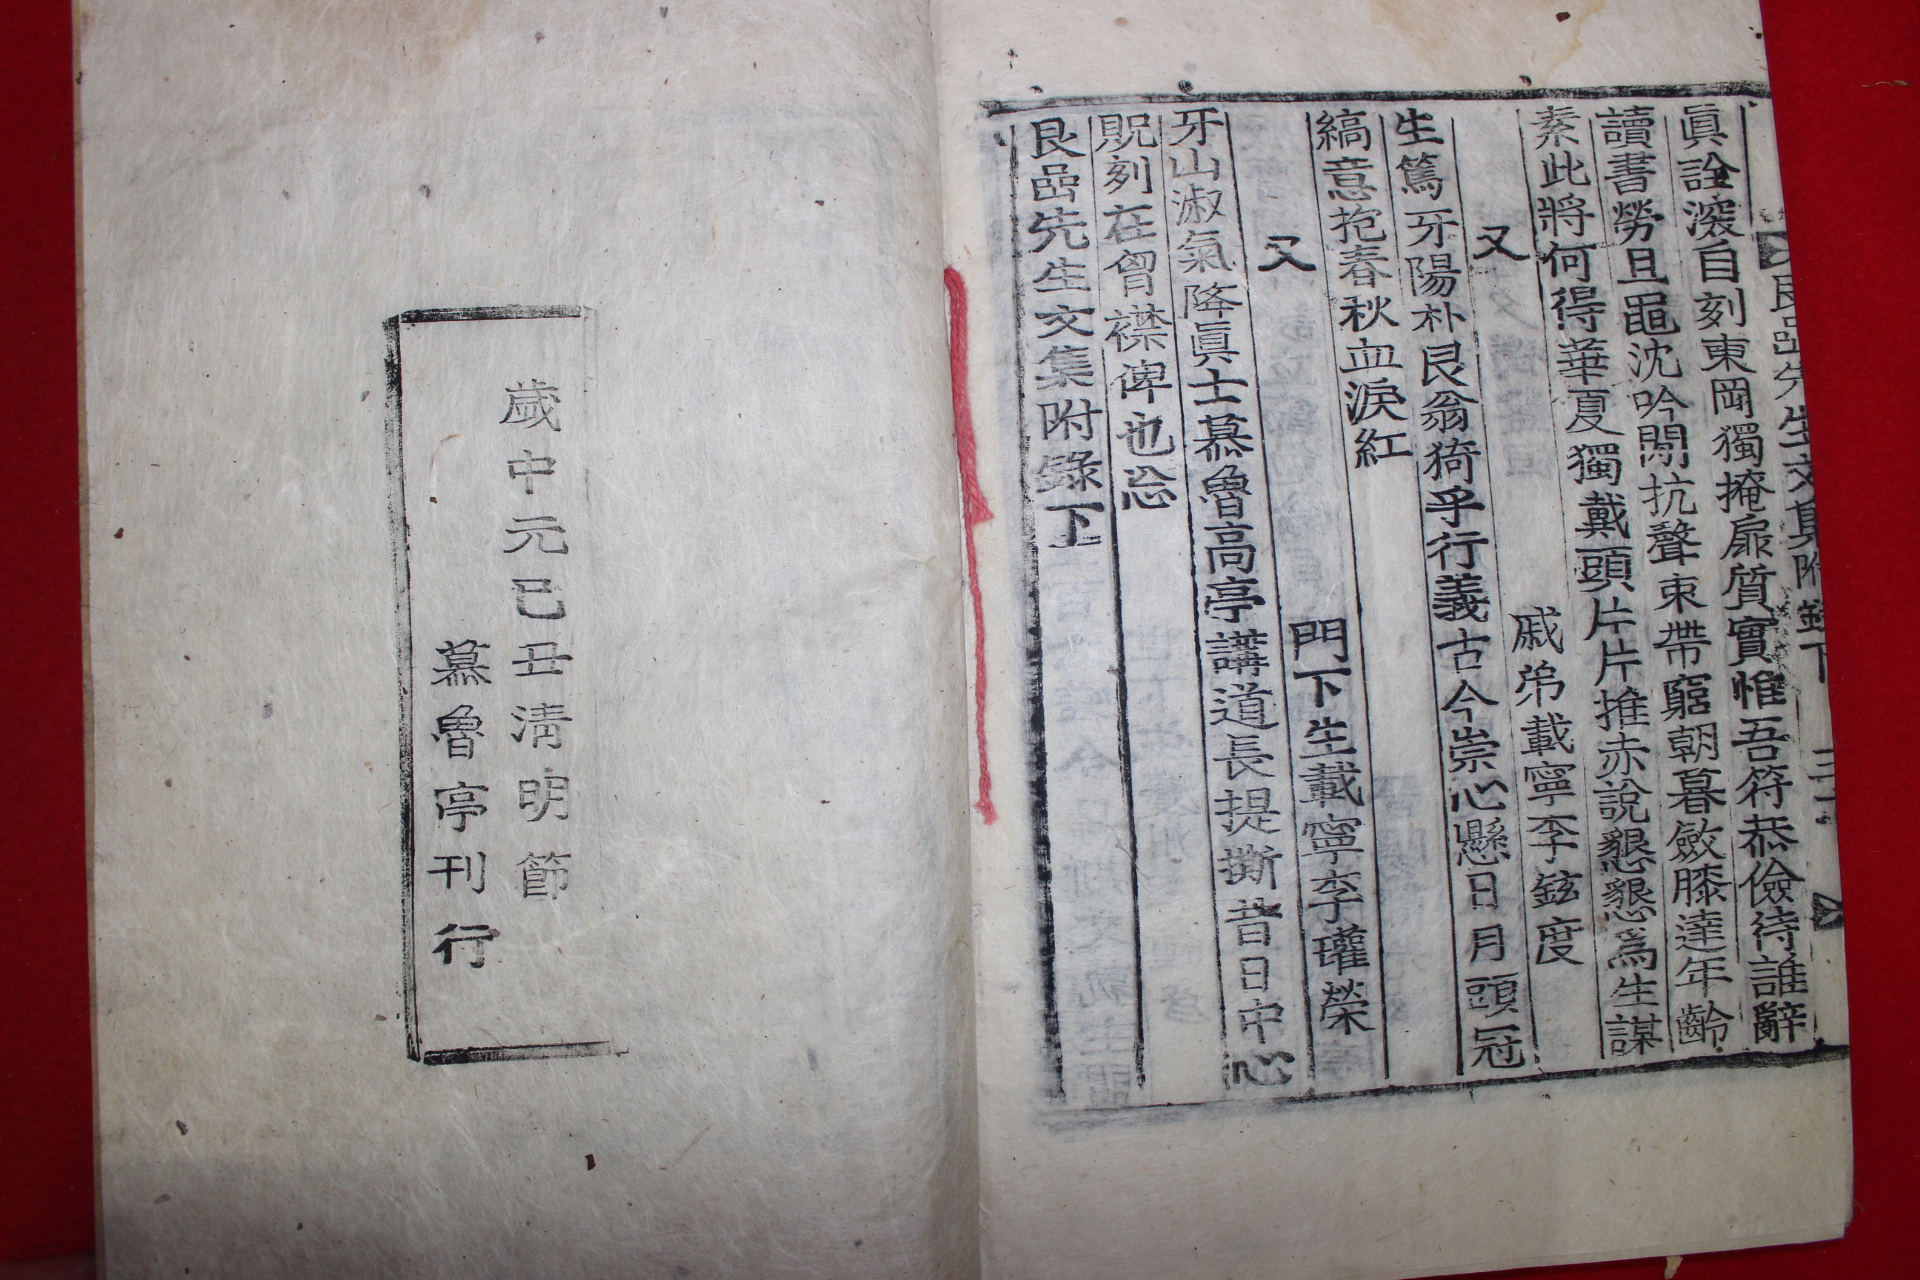 艮嵒先生文集附錄下
眞詮滚自刻東岡獨掩扉質實惟吾符恭儉待誰辭
讀書勞且黽沈吟閒抗聲束帶窮朝暮斂膝達年齡
素此將何得華夏獨戴頭片片推赤說懇懇爲生謀
又 戚弟載寧李鉉度
生篤牙陽朴艮翁猗乎行義古今崇心懸日月頭冠
縞意抱春秋血淚紅
又 門下生載寧李瓘榮
牙山淑氣降眞士慕魯高亭講道長提撕昔日中心
貺刻在胷襟俾也忘
艮嵒先生文集附錄下
歲中元己丑淸明節
慕魯亭刊行